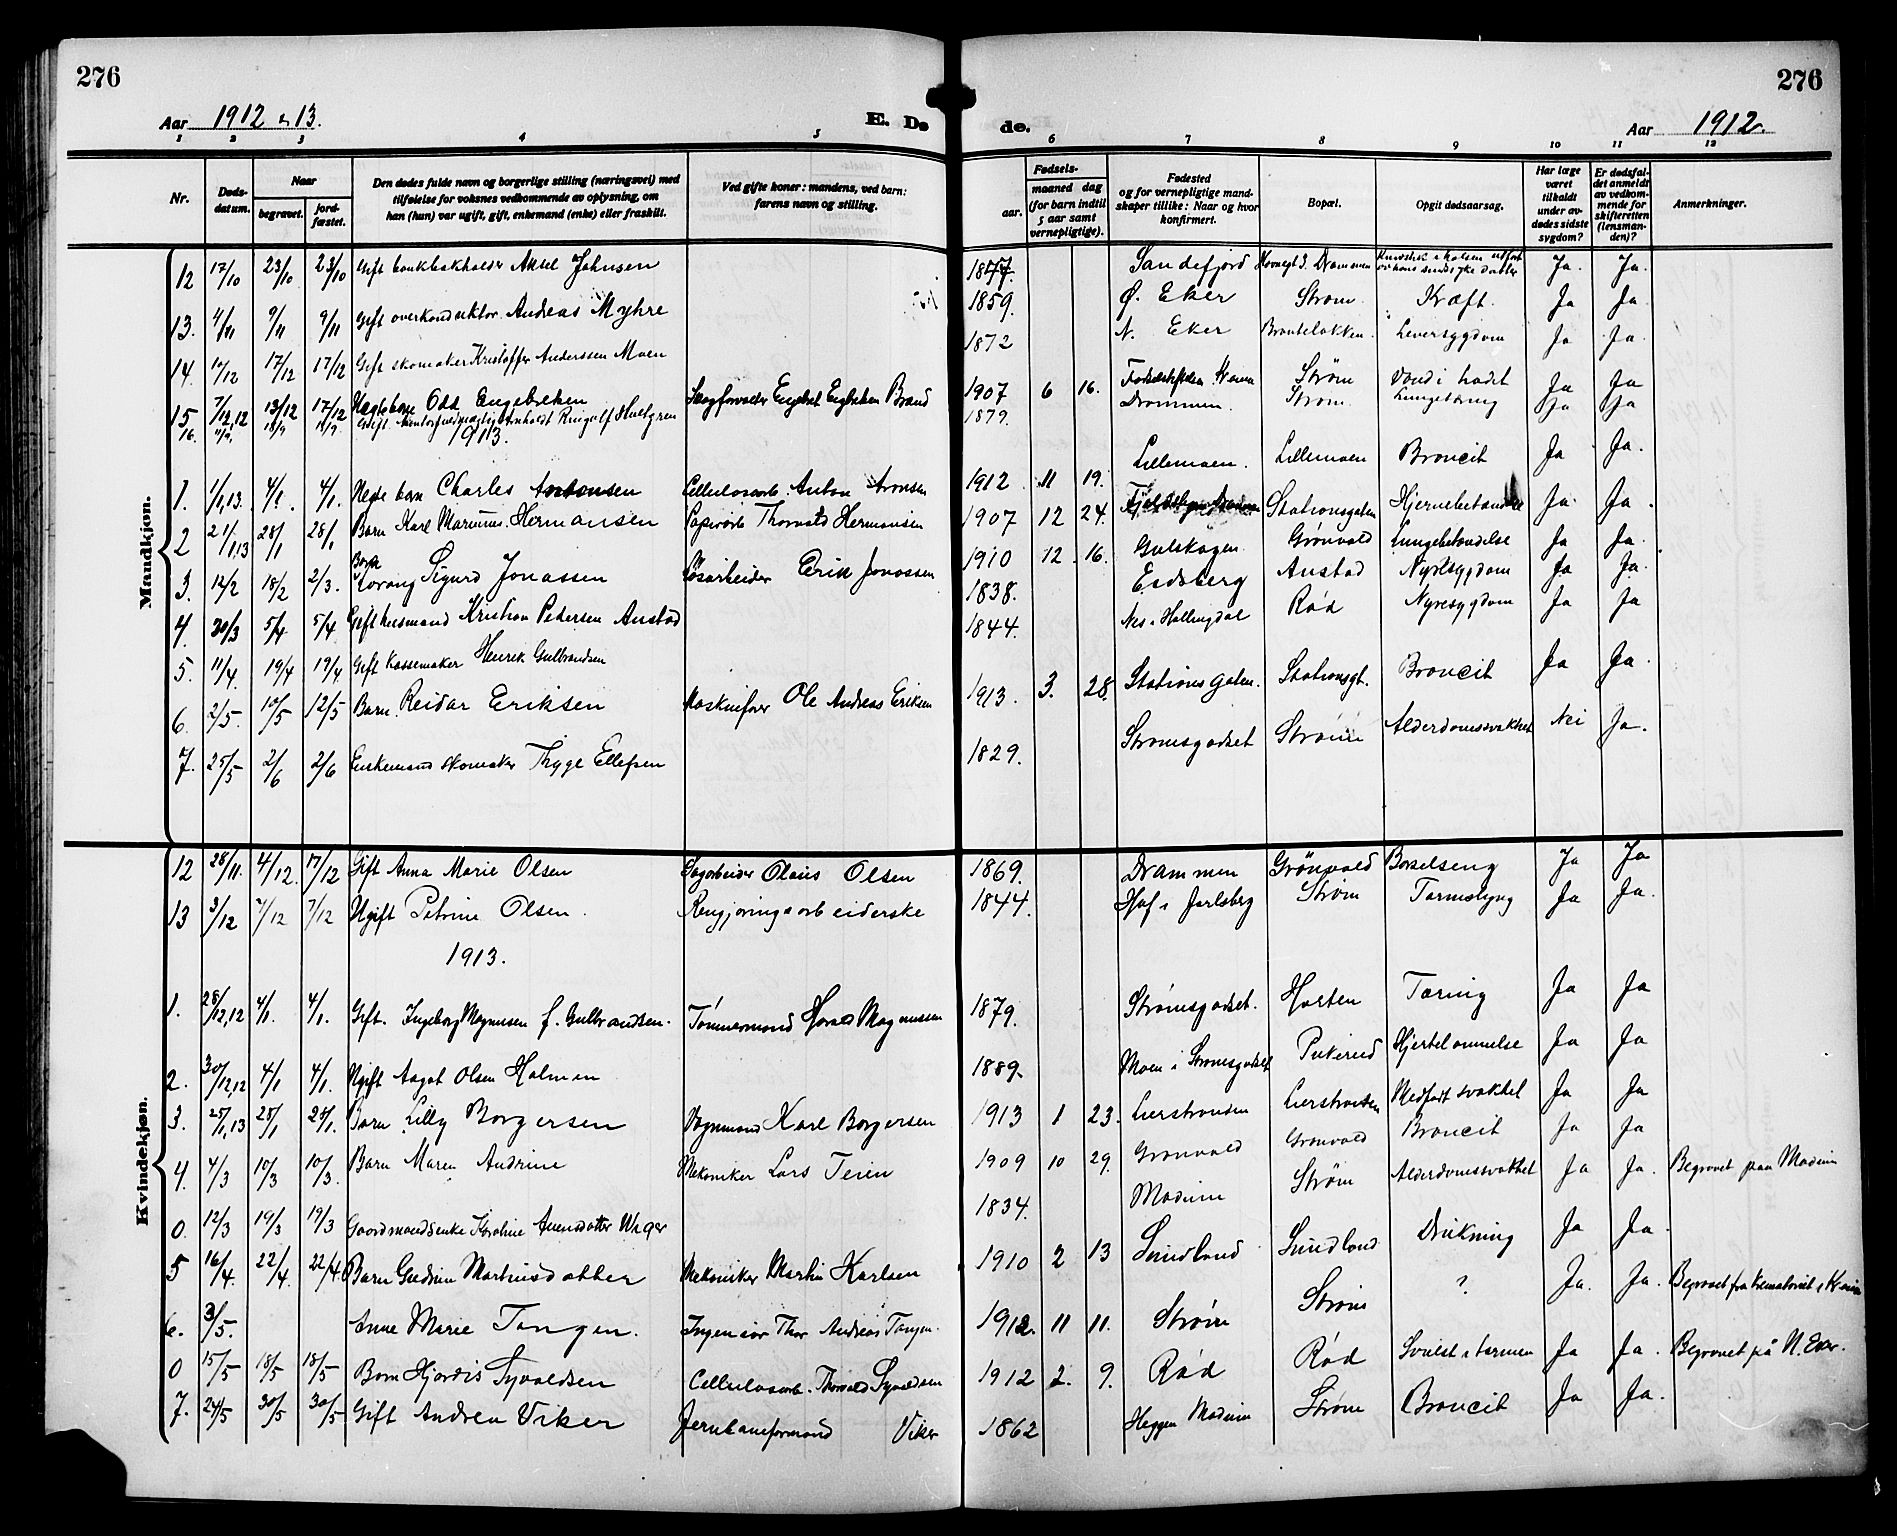 276
276
Aar 1912 - 13.
E. Dø
de.
Aar 1912.
1 2 3 4 5 6 7 8 9 10 11 12
Nr.
Døds-
datum.
Naar
begravet.
jord-
fæstet.
Den dødes fulde navn og borgerlige stilling (næringsvei) med
tilføielse for voksnes vedkommende av oplysning, om
han (hun) var ugift, gift, enkemand (enke) eller fraskilt.
Ved gifte koner: mandens, ved barn:
farens navn og stilling.
Fødsels-
aar.
maaned dag
(for barn indtil
5 aar samt
vernepligtige).
Fødested
og for vernepligtige mand-
skaper tillike: Naar og hvor
konfirmert.
Bopæl.
Opgit dødsaarsag.
Har læge
været
tilkaldt
under av-
dødes sidste
sygdom?
Er dødsfal-
det anmeldt
av vedkom-
mende for
skifteretten
(lensman-
den)?
Anmerkninger.
Mandkjøn.
12 17/10 23/10 23/10 Gift bankbokholder Aksel Johnsen 1877. Sandefjord Drammen Ja. Ja.
13. 4/11 9/11 9/11 Gift overkonduktør Andreas Myhre 1859. Ø. Eker Strøm Kræft. Ja Ja.
14. 17/12 17/12 Gift skomaker Kristoffer Anderssen Moen 1872 N. Eker Leversygdom Ja Ja.
15 7/12,12 13/12 17/12 Odd Engebretsen Brand 1907 6 16. Strøm Vand i hodet Ja Ja
16. Gift Hultgren 1879. Drammen. Strøm Ja Ja
1913.
1. 1/1,13. 4/1. 4/1. Charles Antonsen Cellulosearb. Anton Aronsen 1912 11 19. Lillemoen. Lillemoen Broncit Ja Ja.
2 21/1,13 28/1 28/1 Barn Karl Marinus Hermansen Papirarb Thorvald Hermansen 1907 12 24. Stationsgaten Hjernebetændelse Ja. Ja.
3. 12/2 18/2 2/3. Barn Sigurd Jonassen Løsarbeider Erik Jonassen 1910 12 16. Gulskogen Grønvold Lungebetændelse Ja Ja.
4. 30/3 5/4 5/4 Gift husmand Kristian Pedersen Austad 1838. Eidsberg Austad Nyresygdom Ja Ja.
5. 11/4. 19/4 19/4. Gift Kassemaker Henrik Gulbrandsen 1844. Nes i Hallingdal Rød Nyresygdom Ja Ja
6. 2/5. 12/5 12/5 Barn. Reidar Eriksen Maskinfører Ole Andreas Eriksen 1913. 3. 28. Stationsgaten. Stationsgt. Broncit Ja Ja.
7. 25/5 2/6 2/6 Enkemand skomaker Thyge Ellefsen 1829. Strømsgodset Strøm Alderdomssvakhet Nei Ja.
Kvindekjøn.
12 28/11. 4/12. 17/12 Gift Anna Marie Olsen Sagarbeider Olaus Olsen 1869. Drammen Grönvold Barselseng Ja Ja
13 3/12 7/12 7/12 Ugift Petrine Olsen. Rengjøringsarbeiderske 1844. Hof i Jarlsberg Strøm Tarmslyng Ja Ja.
1913.
1. 28/12,12 4/1. 4/1. Gift. Ingeborg Magnussen f. Gulbrandsen. Tømmermand Harald Magnussen 1879. Strømsgodset. Horten Tæring Ja Ja
2. 30/12,12 4/1 4/1. Ugift Aagot Olsen Holmen 1889. Moen i Strømsgodset Pukerud Hjertelammelse Ja Ja
3. 25/1,13 28/1 28/1. Barn Lilly Borgersen Vognmand Karl Borgersen 1913 1 23. Lierstranden Lierstranden Medfødt svakhet Ja Ja
4. 4/3 10/3 10/3. Barn Maren Andrine Mekaniker Lars Teien 1909 10 29. Grønvold Grønvold Broncit Ja Ja
0. 12/3 19/3 19/3 Gaardmandsenke Karoline Amundsdatter 1834. Modum Strøm Alderdomssvakhet Ja Ja. Begravet paa Modum
5 16/4. 22/4. 22/4 Barn Gudrun Martinsdatter Mekaniker Martin Karlsen 1910 2 13 Sundland Sundland Drukning Ja Ja.
6. 3/5. Anne Marie Tangen. Ingeniør Thor Andreas Tangen. 1912. 11 11. Strøm Strøm ? Ja. Ja. Begravet fra Krematoriet i Kr.ania
0 15/5 18/5 18/5 Barn Hjørdis Syvaldsen Cellulosearb. Thorvald Syvaldsen 1912 2. 9. Rød Rød Svulst i tarmen Ja Ja. Begravet på N. Eker.
7. 24/5 30/5 30/5 Gift Andrea Viker Jernbaneformand Viker 1862 Heggen Modum Strøm Broncit Ja Ja.